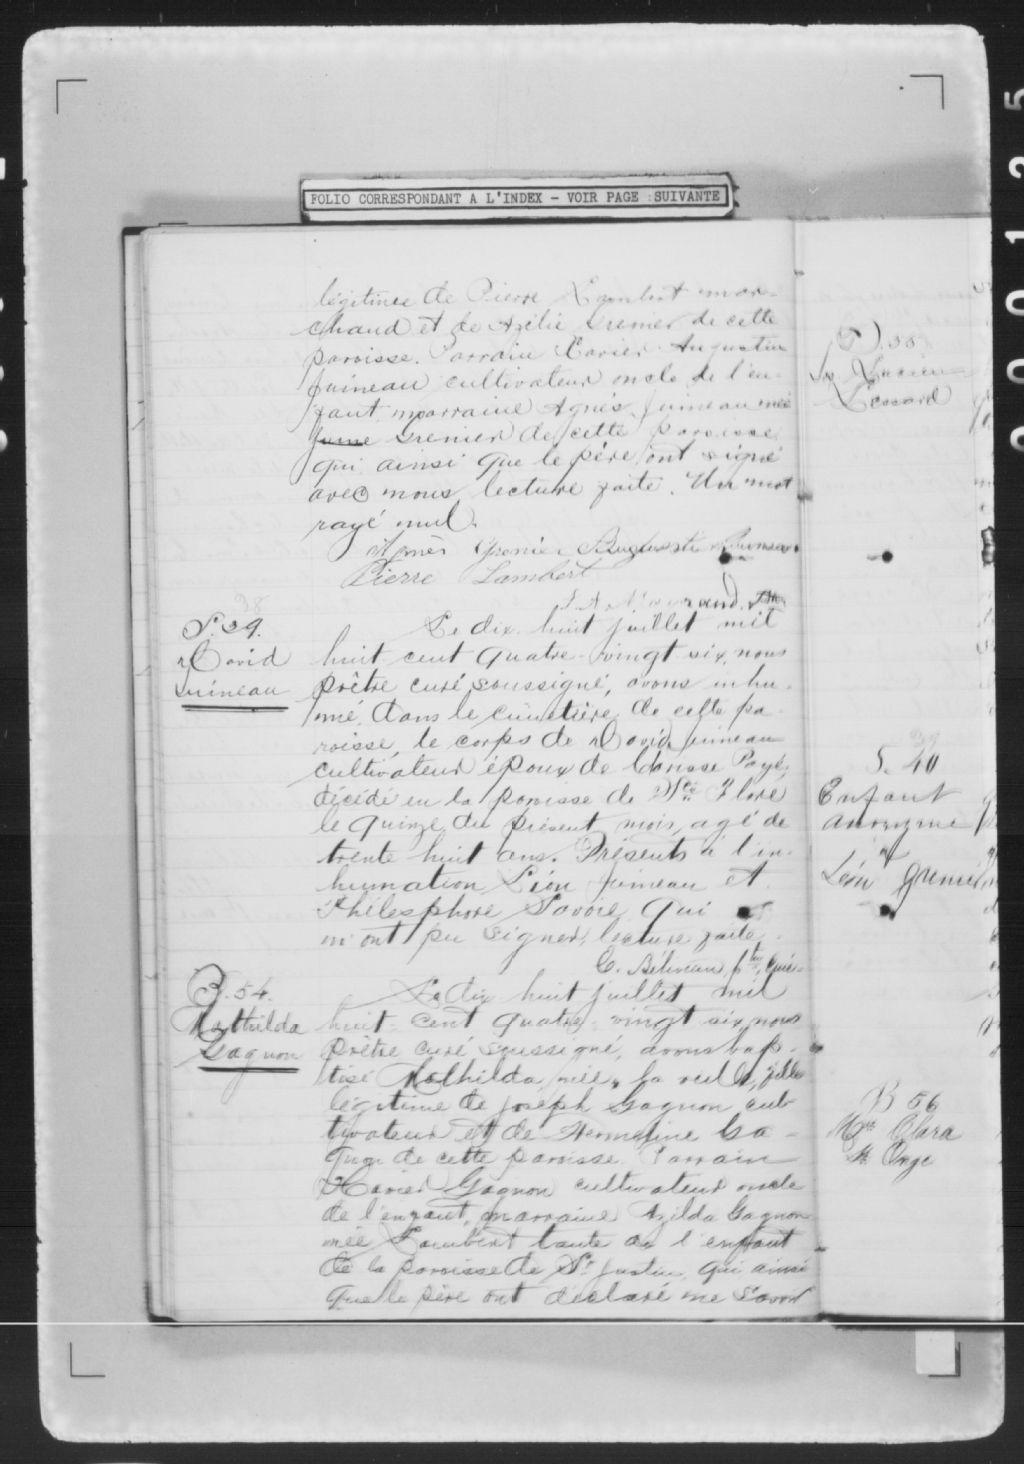 FOLIO CORRESPONDANT A L'INDEX - VOIR PAGE SUIVANTE
légitime de Pierre Lambert mar-
chand et de Azélie Grenier de cette
paroisse. Parrain Xavier Augustin
Juineau cultivateur oncle de l'en-
fant marraine Agnès Juineau née
Grenier de cette paroisse
qui ainsi que le père ont signé
avec nous, lecture faite. Un mot
rayé nul.
Agnès Grenier
Pierre Lambert
S. 39.
David
Juineau
Le dix huit juillet mil
huit cent quatre-vingt six, nous
prêtre curé soussigné, avons inhu-
mé dans le cimetière de cette pa-
roisse, le corps de David Juineau
cultivateur époux de Clarisse Payé,
décédé en la paroisse de Ste Flore
le quinze du présent mois, agé de
trente huit ans. Présents à l'in-
humation Léon Juineau et
Thélesphore Savoie qui
n'ont pu signer, lecture faite.
C. Béliveau, ptre, curé
B. 54.
Mathilda
Gagnon
Le dix huit juillet mil
huit-cent quatre-vingt six, nous
prêtre curé soussigné, avons bap-
tisé Mathilda, née la veille, fille
légitime de Joseph Gagnon cul-
tivateur et de Hermeline Ga-
gnon de cette paroisse. Parrain
Xavier Gagnon cultivateur oncle
de l'enfant, marraine Azilda Gagnon
née Lambert tante de l'enfant
de la paroisse de St Justin, qui ainsi
que le père ont déclaré ne savoir
Lucien
Lessard
S. 40
Enfant
anonyme
Léon Grenier
B 56
Mie Clara
St Onge